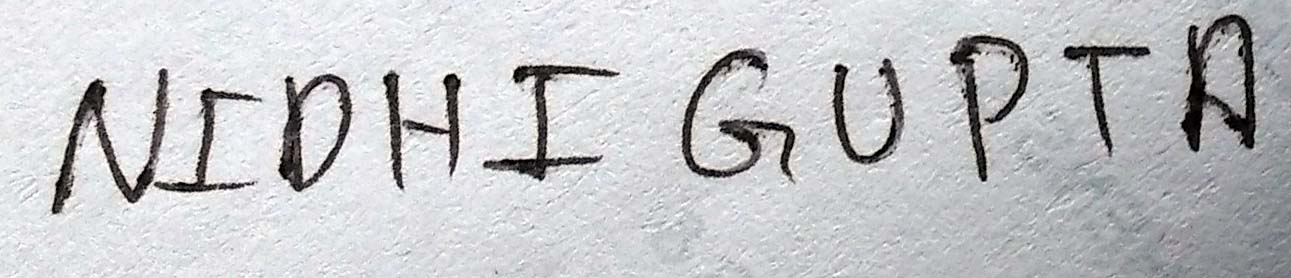 NIDHI GUPTA